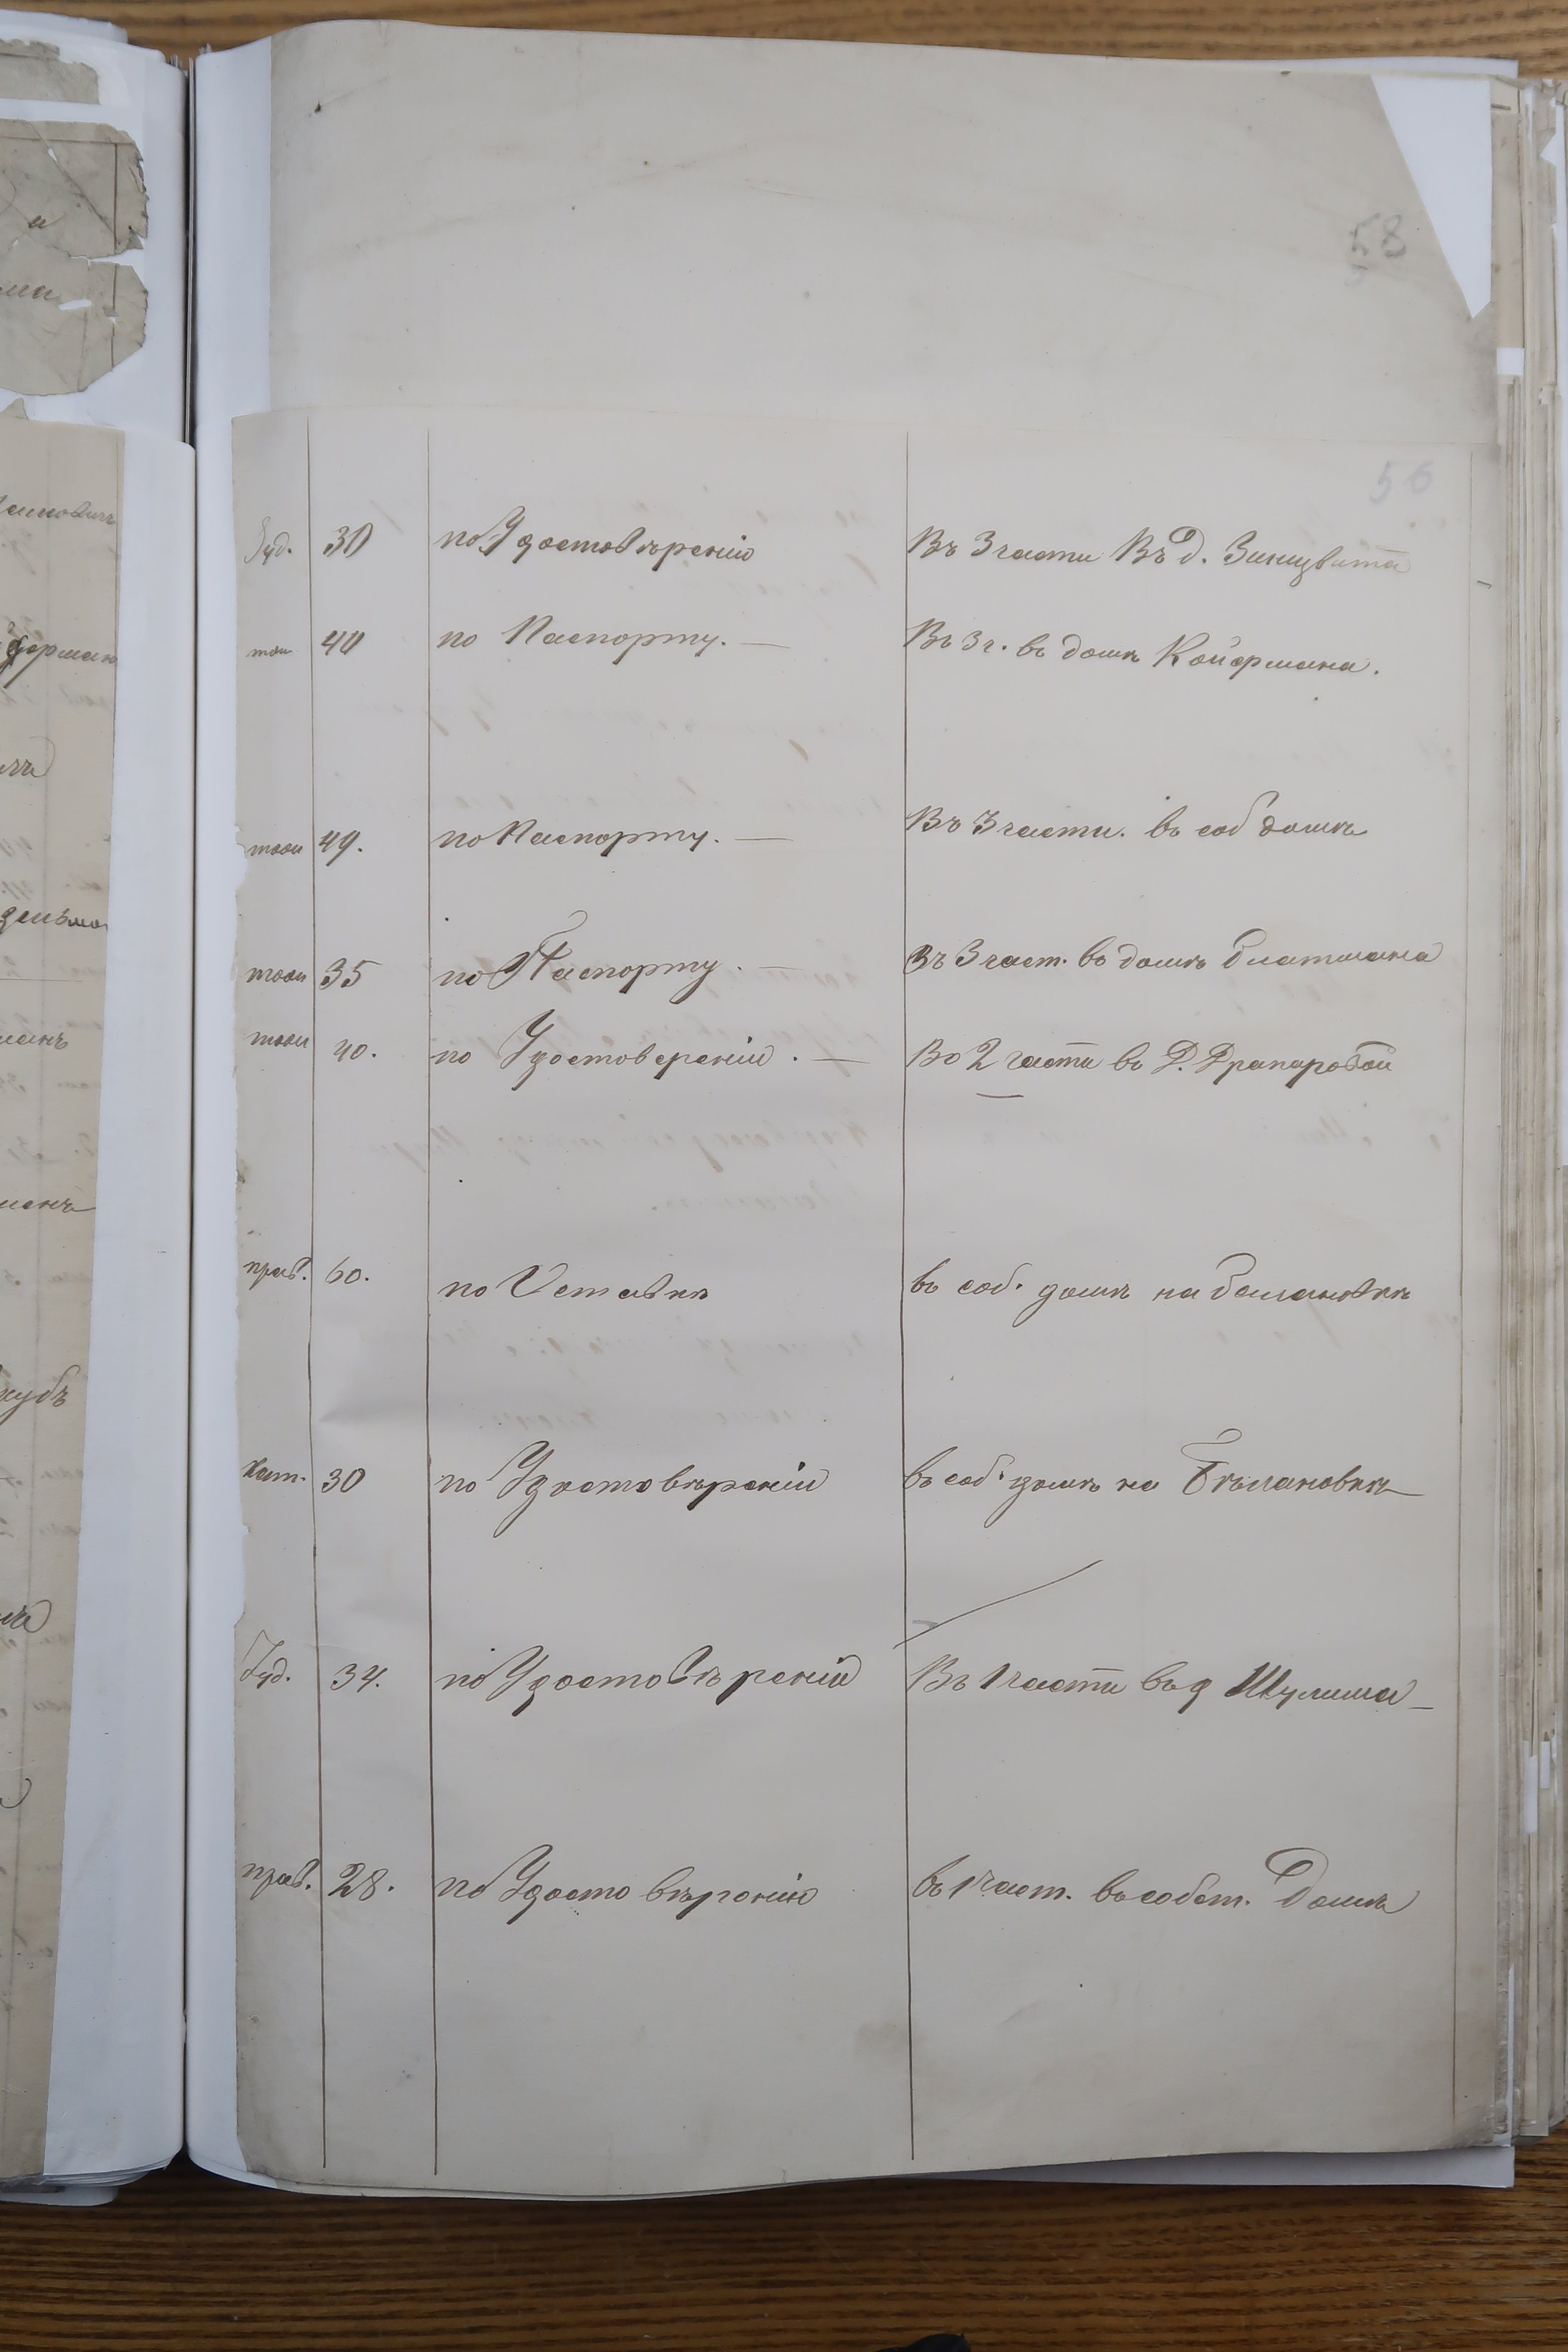 58
56
Іуд. 30 по Удостовѣренію Въ 3 части Въ д. Зинцвита
тои 40 по Паспорту. — Въ 3 ч. въ домѣ Койфмана.
тоои 49. по Паспорту. — Въ 3 части. въ соб домѣ
тоои 35 по Паспорту. — Въ 3 част. въ домѣ Блатмана
тоои 40. по Удостоверенію. — Во 2 части въ Д. Драпаровой
прав. 60. по Оставкѣ въ соб. домѣ на Балановкѣ
Кат. 30 по Удостовѣренію въ соб. домѣ на Бѣлановкѣ
Іуд. 34. по Удостовѣренію Въ 1 части въ д Шулима —
прав. 28. по Удостовѣренію въ 1 част. въ собст. Домѣ